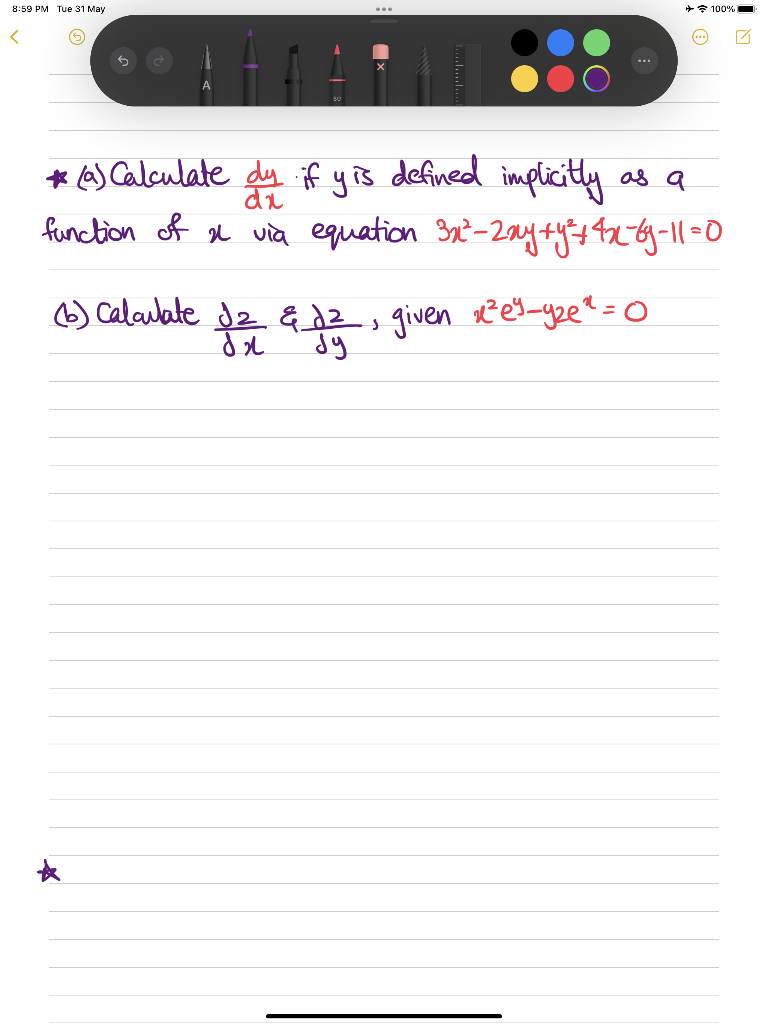 8:59 PM Tue 31 May 100%
A
50
* (a) Calculate dy/dx if y is defined implicitly as a
function of x via equation 3x²-2xy+y²+4x-6y-11=0
(b) Calculate ∂z/∂x & ∂z/∂y, given x²e^y-yze^x=0